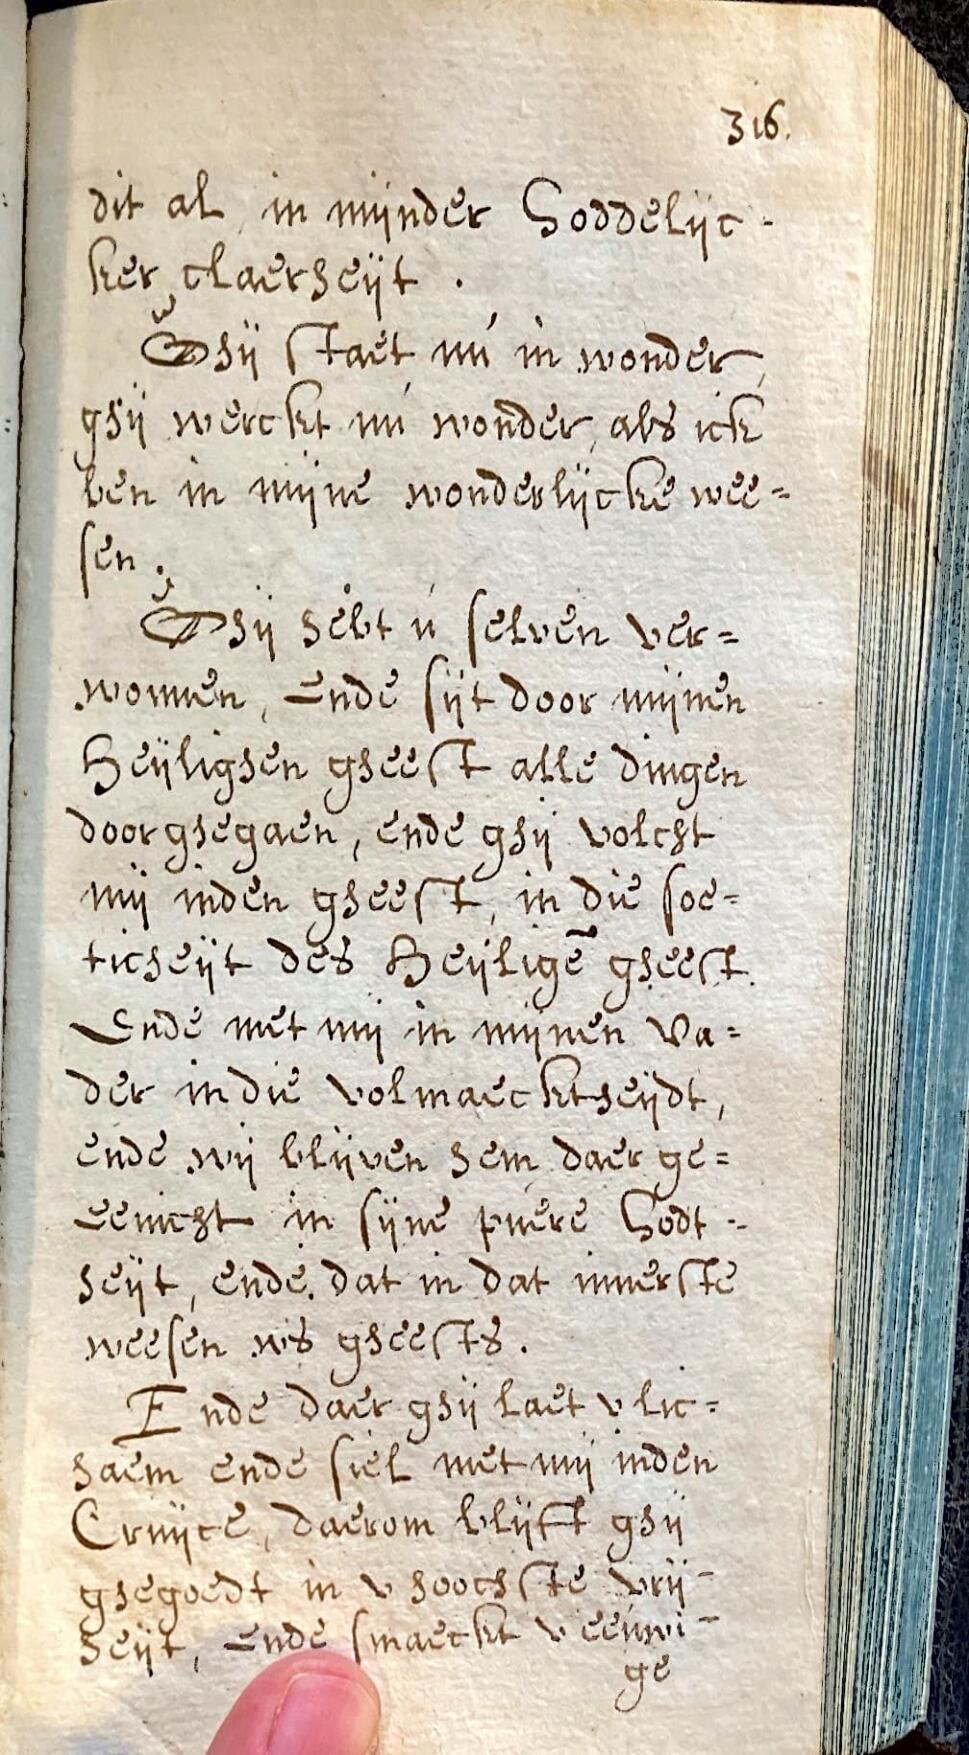 316.
dit al in mijnder Goddelijc-
ker claerheijt .
Ghij staet nú in wonder,
ghij werckt nú wonder, als ick
ben in mijne wonderlijcke wee=
sen.
Ghij hebt ú selven ver=
wonnen, Ende sijt door mijnen
Heijlighen gheest alle dingen
doorghegaen, ende ghij volcht
mij inden gheest, in die soe=
ticheijt des Heijligē gheest.
Ende met mij in mijnen Va=
der in die volmaecktheijdt,
ende wij blijven hem daer ge=
eenicht in sijne puere Godt-
heijt, ende dat in dat innerste
weesen ws gheests.
Ende daer ghij laet v lic=
haem ende siel met mij inden
Cruijce, daerom blijft ghij
ghegoedt in v hoochste vrij-
heijt, ende smaeckt v eeúwi-
ge